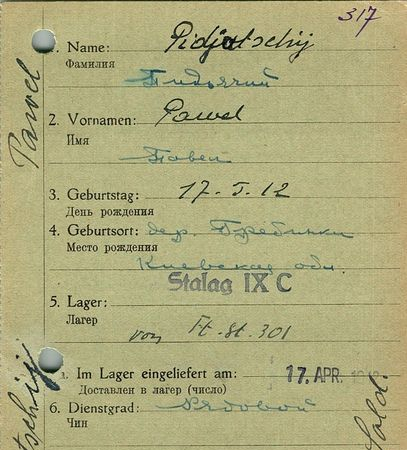 317
1. Name: Pidjatschij
Фамилия
Подьячий
2. Vornamen: Pawel
Имя
Павел
3. Geburtstag: 17. 5. 12
День рождения
4. Geburtsort: дер. Гребинки
Место рождения
Киевская обл.
Stalag IX C
5. Lager:
Лагер von Ft. St. 301
a. Im Lager eingeliefert am: 17. APR.
Доставлен в лагер (число)
6. Dienstgrad: Рядовой
Чин Sold.
Pawel